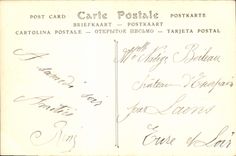 POST CARD Carte Postale POSTKARTE
BRIEFKAART — POSTKAART
CARTOLINA POSTALE — ОТКРЫТОЕ ПИСЬМО — TARJETA POSTAL
A samedi soir
Amitiés
Château
par Laons
Eure et Loir